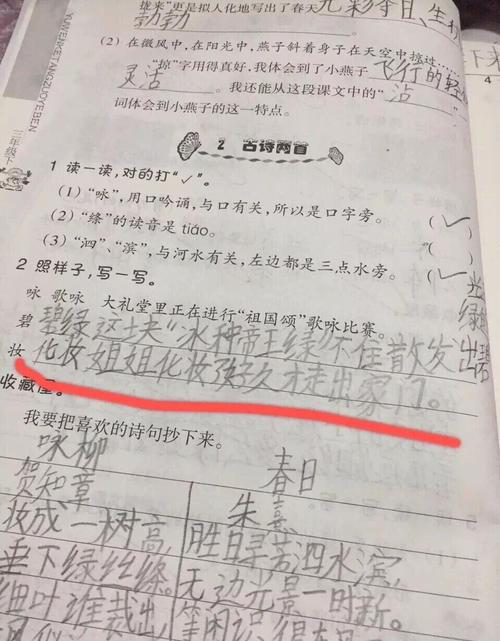 拢来”更是拟人化地写出了春天光彩夺目、生机
勃勃
(2) 在微风中，在阳光中，燕子斜着身子在天空中掠过……
“掠”字用得真好，我体会到了小燕子飞行的轻
灵活。我还能从这段课文中的“沾”
词体会到小燕子的这一特点。
三年级下
2 古诗两首
1 读一读，对的打“✓”。
(1)“咏”，用口吟诵，与口有关，所以是口字旁。(✓)
(2)“绦”的读音是 tiāo。( )
(3)“泗”、“滨”，与河水有关，左边都是三点水旁。(✓)
2 照样子，写一写。
咏 歌咏 大礼堂里正在进行“祖国颂”歌咏比赛。
碧 碧绿 这块“冰种帝王绿”不住散发出碧绿
妆 化妆 姐姐化妆了好久才走出家门。
收藏屋。
我要把喜欢的诗句抄下来。
咏柳
贺知章
妆成一树高，
垂下绿丝绦。
细叶谁裁出，
春日
朱熹
胜日寻芳泗水滨，
无边光景一时新。
等闲识得东
下来
4